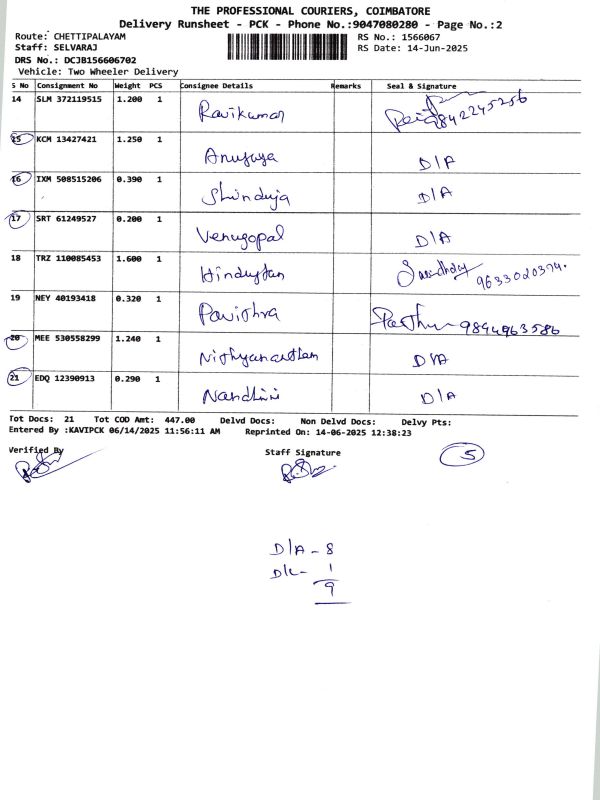 THE PROFESSIONAL COURIERS, COIMBATORE
Delivery Runsheet - PCK - Phone No.:9047080280 - Page No.:2
Route: CHETTIPALAYAM RS No.: 1566067
Staff: SELVARAJ RS Date: 14-Jun-2025
DRS No.: DCJB156606702
Vehicle: Two Wheeler Delivery
S No Consignment No Weight PCS Consignee Details Remarks Seal & Signature
14 SLM 372119515 1.200 1 Ravikumar 9842245256
15 KCM 13427421 1.250 1 Anusuya D/A
16 IXM 508515206 0.390 1 Shinduja D/A
17 SRT 61249527 0.200 1 Venugopal D/A
18 TRZ 110085453 1.600 1 Hindustan 9633020394.
19 NEY 40193418 0.320 1 Pavithra 9894963586
20 MEE 530558299 1.240 1 Nithyananthan D/A
21 EDQ 12390913 0.290 1 Nandhini D/A
Tot Docs: 21 Tot COD Amt: 447.00 Delvd Docs: Non Delvd Docs: Delvy Pts:
Entered By :KAVIPCK 06/14/2025 11:56:11 AM Reprinted On: 14-06-2025 12:38:23
Verified By Staff Signature 5
D/A - 8
D/L - 1
9